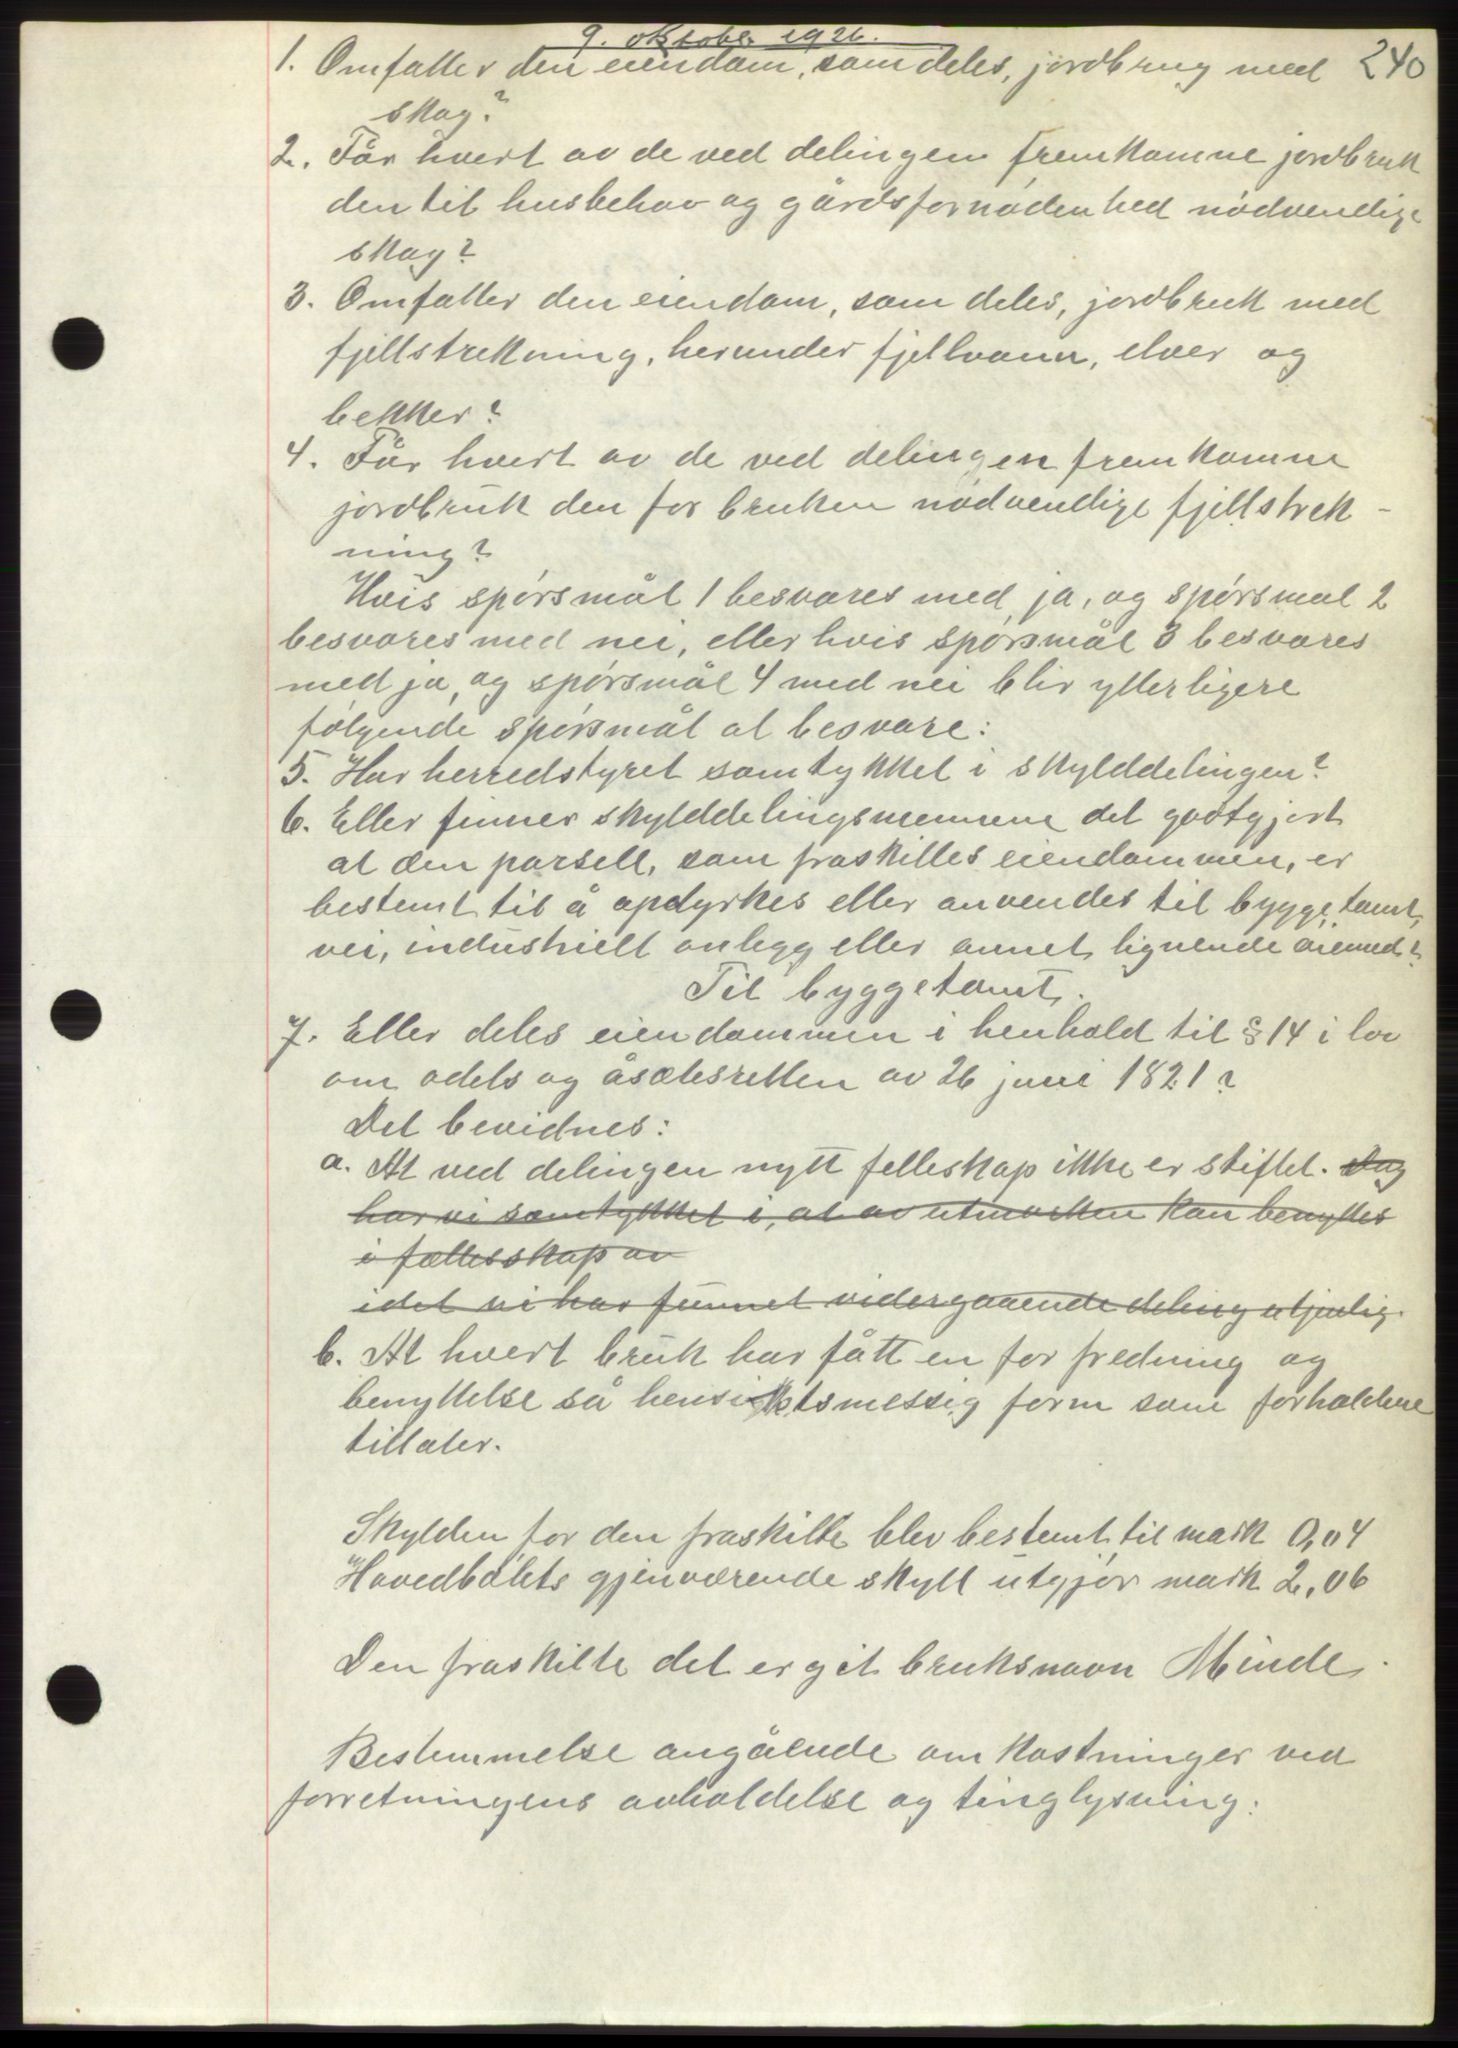 9. oktober 1926.
240
1. Omfatter den eiendom, som deles, jordbrug med
skog?
2. Får hvert av de ved delingen fremkomne jordbruk
den til husbehov og gårdsfornødenhed nødvendige
skog?
3. Omfatter den eiendom, som deles, jordbruk med
fjellstrekning, herunder fjellvann, elver og
bekker?
4. Får hvert av de ved delingen fremkomne
jordbruk den for bruken nødvendige fjellstrek-
ning?
Hvis spørsmål 1 besvares med ja, og spørsmål 2
besvares med nei, eller hvis spørsmål 3 besvares
med ja, og spørsmål 4 med nei blir ytterligere
følgende spørsmål at besvare:
5. Har herredstyret samtykket i skylddelingen?
6. Eller finner skylddelingsmennene det godtgjort
at den parsell, som fraskilles eiendommen, er
bestemt til å opdyrkes eller anvendes til byggetomt,
vei, industrielt anlegg eller annet lignende øiemed?
Til byggetomt.
7. Eller deles eiendommen i henhold til § 14 i lov
om odels og åsætesretten av 26 juni 1821?
Det bevidnes:
a. At ved delingen nytt felleskap ikke er stiftet. Dog
har vi samtykket i, at av utmarken kan benyttes
i fællesskap av
idet vi har funnet videregaaende deling utjenlig.
b. At hvert bruk har fått en for fredning og
benyttelse så hensiktsmessig form som forholdene
tillater.
Skylden for den fraskilte blev bestemt til mark 0,04
Hovedbølets gjenværende skyld utgjør mark 2,06
Den fraskilte del er git bruksnavn Minde.
Bestemmelse angående omkostninger ved
forretningens avholdelse og tinglysning: